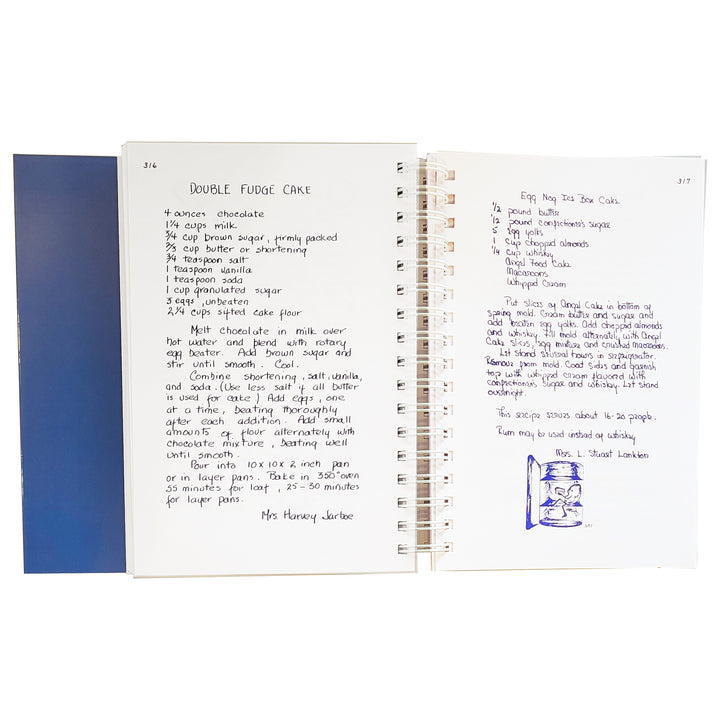 316
DOUBLE FUDGE CAKE
4 ounces chocolate
1 1/4 cups milk
3/4 cup brown sugar, firmly packed
2/3 cup butter or shortening
3/4 teaspoon salt
1 teaspoon vanilla
1 teaspoon soda
1 cup granulated sugar
3 eggs, unbeaten
2 1/4 cups sifted cake flour
Melt chocolate in milk over
hot water and blend with rotary
egg beater. Add brown sugar and
stir until smooth. Cool.
Combine shortening, salt, vanilla,
and soda. (Use less salt if all butter
is used for cake) Add eggs, one
at a time, beating thoroughly
after each addition. Add small
amounts of flour alternately with
chocolate mixture, beating well
until smooth.
Pour into 10 x 10 x 2 inch pan
or in layer pans. Bake in 350° oven
55 minutes for loaf, 25-30 minutes
for layer pans.
Mrs. Harvey Jarboe
317
Egg Nog Ice Box Cake
1/2 pound butter
1/2 pound confectioner's sugar
5 egg yolks
1 cup chopped almonds
1/4 cup whiskey
Angel Food Cake
Macaroons
Whipped Cream
Put slices of Angel Cake in bottom of
spring mold. Cream butter and sugar and
add beaten egg yolks. Add chopped almonds
and whiskey. Fill mold alternately with Angel
Cake slices, egg mixture and crushed macaroons.
Let stand several hours in refrigerator.
Remove from mold. Coat sides and garnish
top with whipped cream flavored with
confectioner's sugar and whiskey. Let stand
overnight.
This recipe serves about 16-20 people.
Rum may be used instead of whiskey
Mrs. L. Stuart Lankton